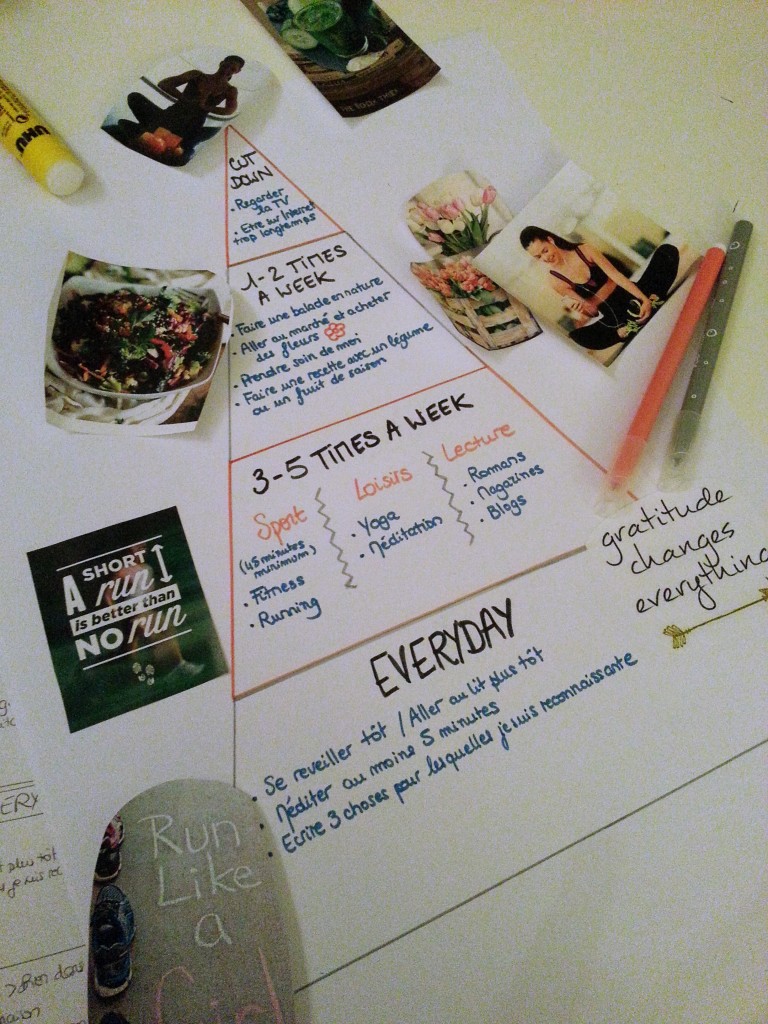 UHU
CUT
DOWN
• Regarder
la TV
• Etre sur Internet
trop longtemps
1-2 TIMES
A WEEK
• Faire une balade en nature
• Aller au marché et acheter
des fleurs
• Prendre soin de moi
• Faire une recette avec un légume
ou un fruit de saison
3-5 TIMES A WEEK
Sport
(45 minutes
minimum)
• Fitness
• Running
Loisirs
• Yoga
• Méditation
Lecture
• Romans
• Magazines
• Blogs
A SHORT
run
is better than
NO run
gratitude
changes
everything
EVERYDAY
• Se reveiller tôt / Aller au lit plus tôt
• Méditer au moins 5 minutes
• Ecrire 3 choses pour lesquelles je suis reconnaissante
Run
Like
a
Girl
ERY
plus tôt
je suis